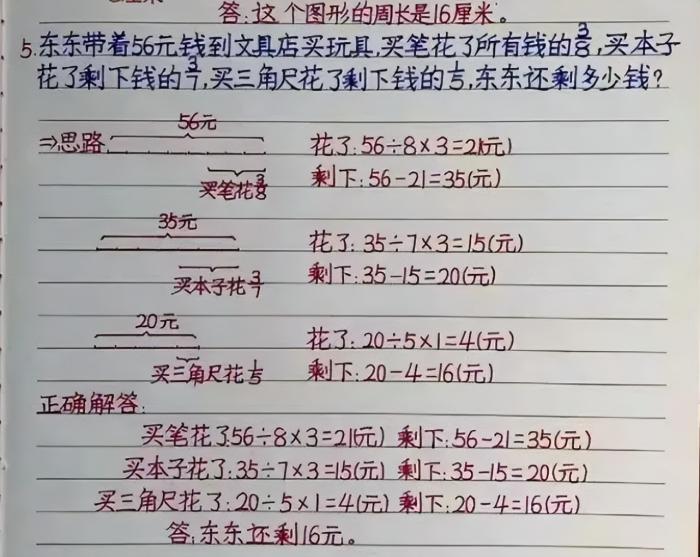 答:这个图形的周长是16厘米。
5.东东带着56元钱到文具店买玩具,买笔花了所有钱的3/8,买本子
花了剩下钱的3/7,买三角尺花了剩下钱的1/5,东东还剩多少钱?
56元
⇒思路 花了:56÷8×3=21(元)
买笔花3/8 剩下:56-21=35(元)
35元
花了:35÷7×3=15(元)
买本子花3/7 剩下:35-15=20(元)
20元
花了:20÷5×1=4(元)
买三角尺花1/5 剩下:20-4=16(元)
正确解答:
买笔花了:56÷8×3=21(元) 剩下:56-21=35(元)
买本子花了:35÷7×3=15(元) 剩下:35-15=20(元)
买三角尺花了:20÷5×1=4(元) 剩下:20-4=16(元)
答:东东还剩16元。